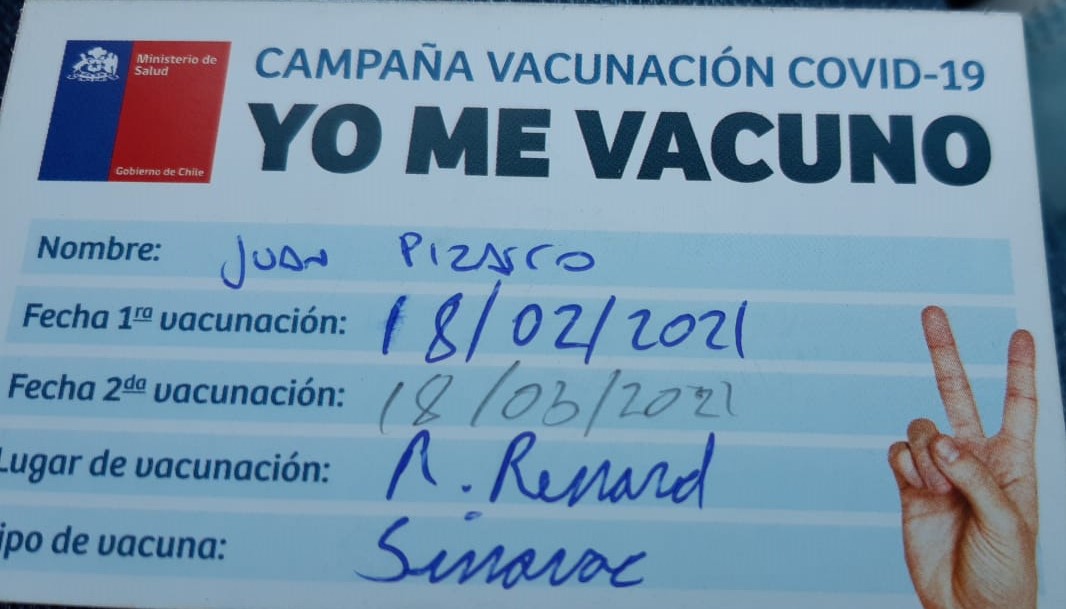 Ministerio de
Salud
Gobierno de Chile
CAMPAÑA VACUNACIÓN COVID-19
YO ME VACUNO
Nombre: JUAN PIZARRO
Fecha 1ra vacunación: 18/02/2021
Fecha 2da vacunación: 18/03/2021
Lugar de vacunación: R. Renard
ipo de vacuna: Sinovac